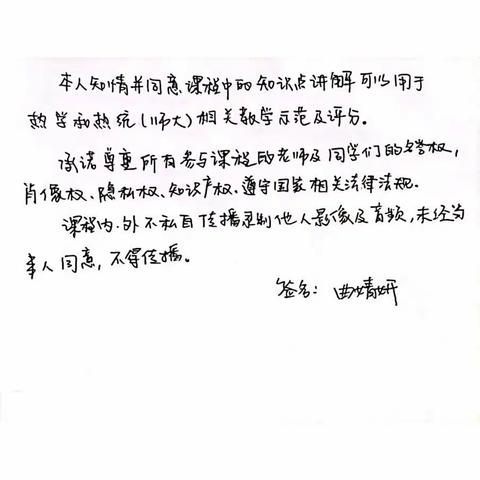 本人知情并同意课程中的知识点讲解可以用于
热学和热统(师大)相关教学示范及评分。
承诺尊重所有参与课程的老师及同学们的名誉权,
肖像权、隐私权、知识产权、遵守国家相关法律法规。
课程内、外不私自传播录制他人影像及音频,未经当
本人同意,不得传播。
签名:曲婧妍